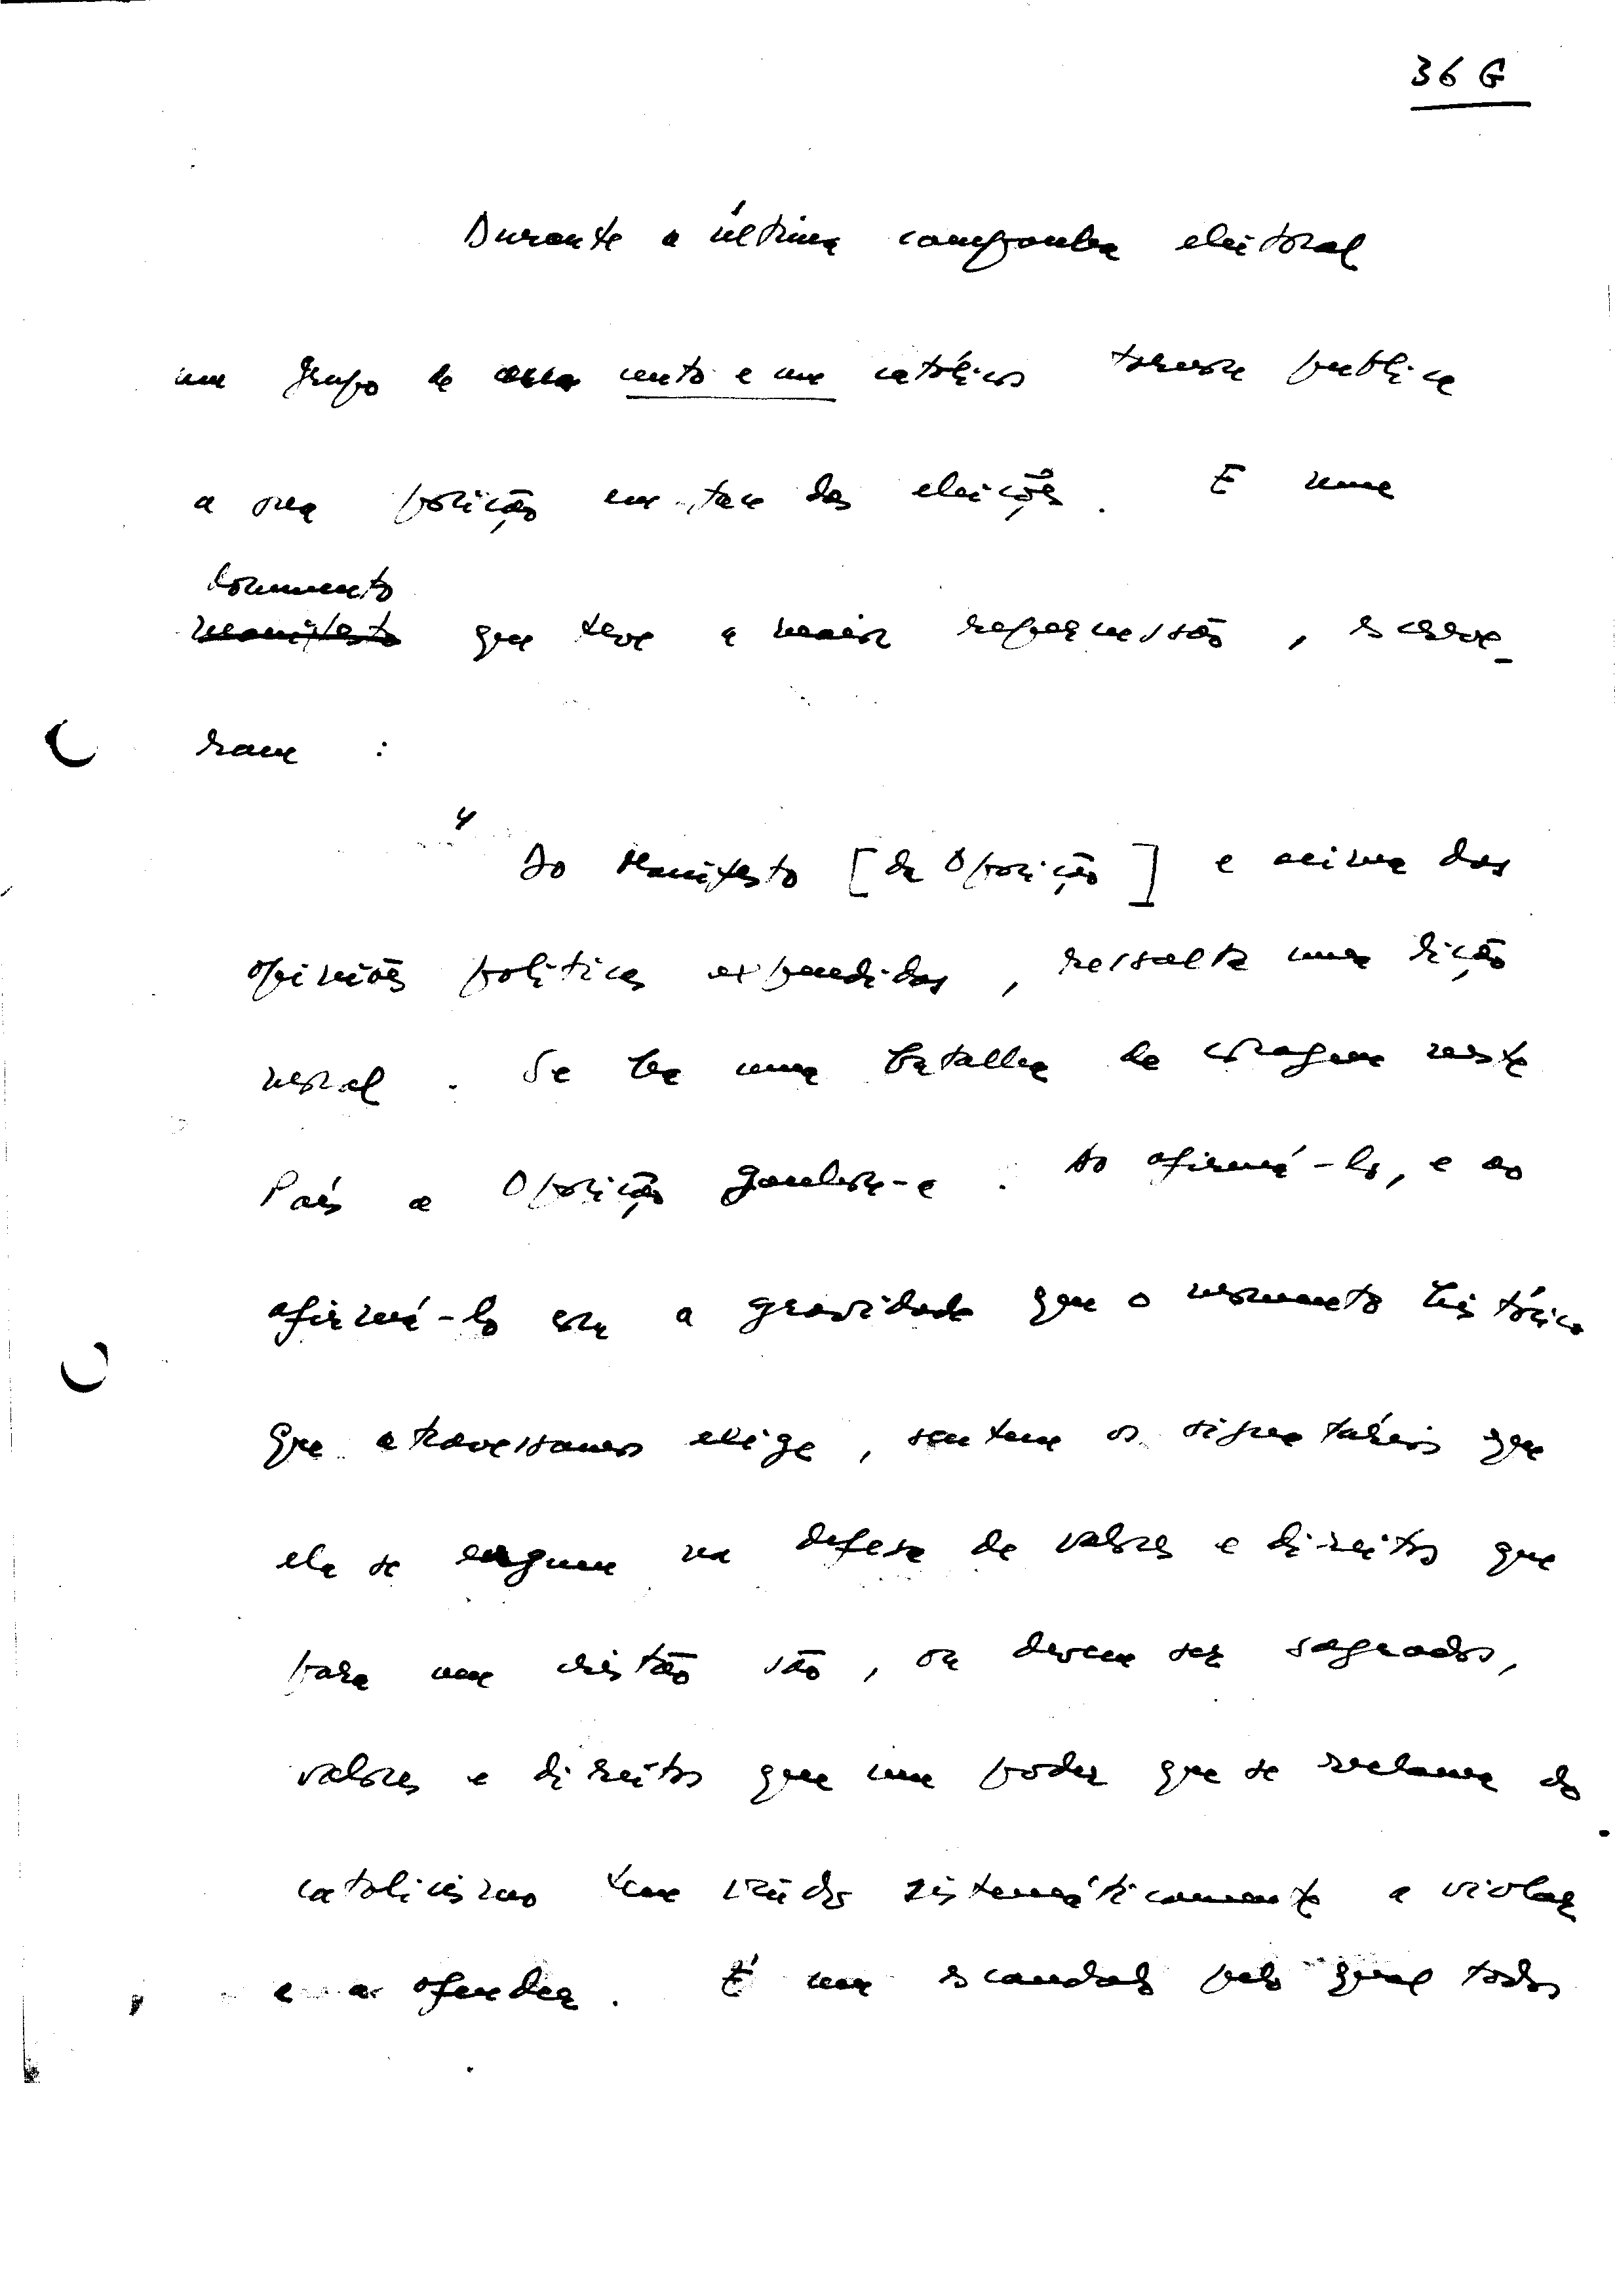 36 G
Durante a última campanha eleitoral
um grupo de cento e um católicos tornou pública
a sua posição em face das eleições. E num
documento
manifesto que teve a maior repercussão, escreve-
ram :
" Do Manifesto [da Oposição] e acima das
opiniões políticas expendidas, ressalta uma lição
moral. Se há uma batalha de coragem neste
País a Oposição ganhou-a. Ao afirmá-lo, e ao
afirmá-lo com a gravidade que o momento histórico
que atravessamos exige, sentem os signatários que
ela se ergueu na defesa de valores e direitos que
para um cristão são, ou devem ser sagrados,
valores e direitos que um poder que se reclama do
catolicismo tem vindo sistemáticamente a violar
e a ofender. É um escandalo pelo qual todos